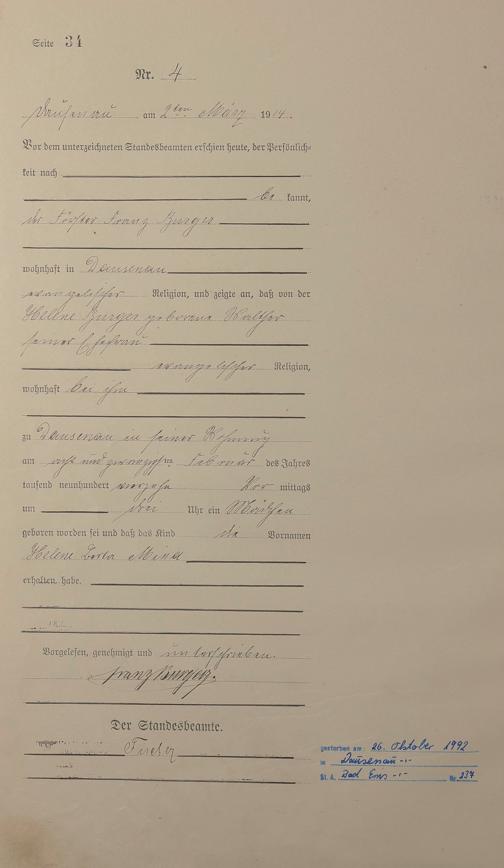 Seite 34
Nr. 4
Dausenau am 2ten März 1914.
Vor dem unterzeichneten Standesbeamten erschien heute, der Persönlich-
keit nach
be kannt,
der Förster Franz Burger
wohnhaft in Dausenau
evangelischer Religion, und zeigte an, daß von der
Helene Burger geborene Walther
seiner Ehefrau
evangelischer Religion,
wohnhaft bei ihm
zu Dausenau in seiner Wohnung
am acht und zwanzigsten Februar des Jahres
tausend neunhundert vierzehn Vor mittags
um drei Uhr ein Mädchen
geboren worden sei und daß das Kind die Vornamen
Helene Berta Mina
erhalten habe.
Vorgelesen, genehmigt und unterschrieben.
Franz Burger.
Der Standesbeamte.
gestorben am: 26. Oktober 1992
in Dausenau -.-
St. A. Bad Ems -.- Nr. 237